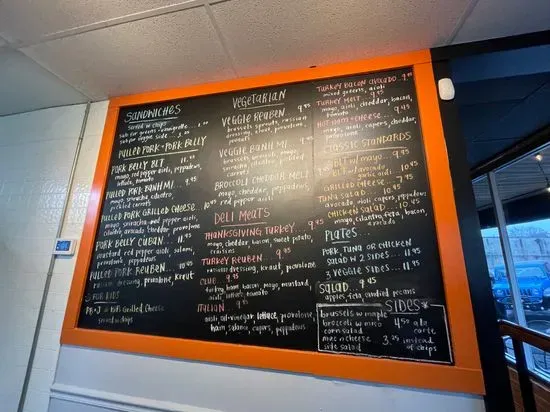 SANDWICHES
served w/ chips
sub for greens + vinaigrette
sub for veggie side
PULLED PORK + PORK BELLY
PORK BELLY BLT
mayo, red pepper aioli, peppadews,
lettuce, tomato
PULLED PORK BANH MI
mayo, sriracha, cilantro
pickled carrots
PULLED PORK GRILLED CHEESE
mayo sriracha and pepper aioli,
cilantro, avocado, cheddar, provolone
PORK BELLY CUBAN
mustard, red pepper aioli, salami,
PULLED PORK REUBEN
russian dressing, provolone, kraut
FOR KIDS
PB + J or Kid's Grilled Cheese
served w/ chips
VEGETARIAN
VEGGIE REUBEN 9.95
brussels sprouts, russian
dressing, kraut, provolone,
VEGGIE BANH MI
BROCCOLI CHEDDAR MELT
mayo, cheddar, peppadews,
DELI MEATS
THANKSGIVING TURKEY
mayo, cheddar, bacon, sweet potato,
TURKEY REUBEN 9.95
russian dressing, kraut, provolone
CLUB
turkey, ham, bacon, mayo, mustard,
aioli, lettuce, tomato
ITALIAN
aioli, oil + vinegar, lettuce, provolone
ham, salami, capers, peppadews
TURKEY BACON AVOCADO
mixed greens, aioli
TURKEY MELT
mayo, aioli, cheddar, bacon,
HOT HAM + CHEESE
mayo, aioli, capers, cheddar,
CLASSIC STANDARDS
BLT w/ mayo
BLT w/ avocado
GRILLED CHEESE
TUNA SALAD
avocado, aioli, capers, peppadews
CHICKEN SALAD
mayo, cilantro, feta, bacon,
avocado
PLATES
PORK, TUNA OR CHICKEN
SALAD W 2 SIDES
3 VEGGIE SIDES
SALAD
apples, feta, candied pecans
SIDES*
brussels w/ maple
broccoli w/ miso
corn salad
mac n cheese
side salad
4.50 a la
carte
3.25 instead
of chips